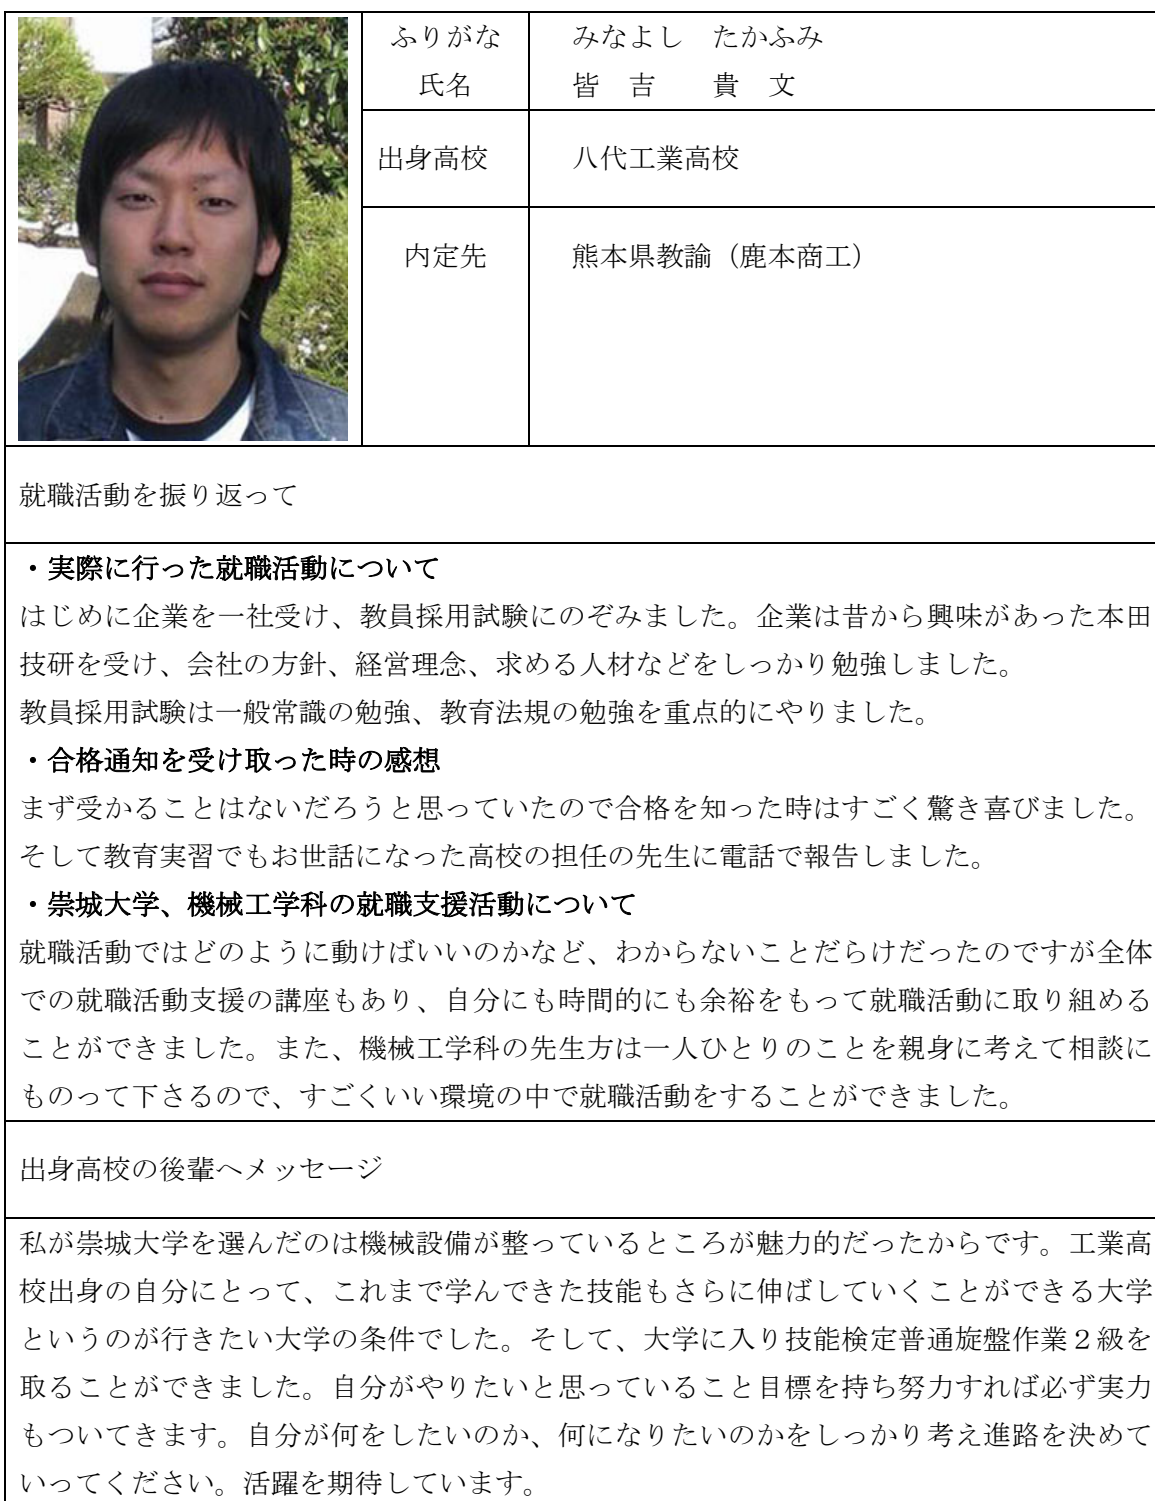 ふりがな　みなよし　たかふみ
氏名　皆　吉　　貴　文
出身高校　八代工業高校
内定先　熊本県教諭（鹿本商工）
就職活動を振り返って
・実際に行った就職活動について
はじめに企業を一社受け、教員採用試験にのぞみました。企業は昔から興味があった本田
技研を受け、会社の方針、経営理念、求める人材などをしっかり勉強しました。
教員採用試験は一般常識の勉強、教育法規の勉強を重点的にやりました。
・合格通知を受け取った時の感想
まず受かることはないだろうと思っていたので合格を知った時はすごく驚き喜びました。
そして教育実習でもお世話になった高校の担任の先生に電話で報告しました。
・崇城大学、機械工学科の就職支援活動について
就職活動ではどのように動けばいいのかなど、わからないことだらけだったのですが全体
での就職活動支援の講座もあり、自分にも時間的にも余裕をもって就職活動に取り組める
ことができました。また、機械工学科の先生方は一人ひとりのことを親身に考えて相談に
ものって下さるので、すごくいい環境の中で就職活動をすることができました。
出身高校の後輩へメッセージ
私が崇城大学を選んだのは機械設備が整っているところが魅力的だったからです。工業高
校出身の自分にとって、これまで学んできた技能もさらに伸ばしていくことができる大学
というのが行きたい大学の条件でした。そして、大学に入り技能検定普通旋盤作業２級を
取ることができました。自分がやりたいと思っていること目標を持ち努力すれば必ず実力
もついてきます。自分が何をしたいのか、何になりたいのかをしっかり考え進路を決めて
いってください。活躍を期待しています。